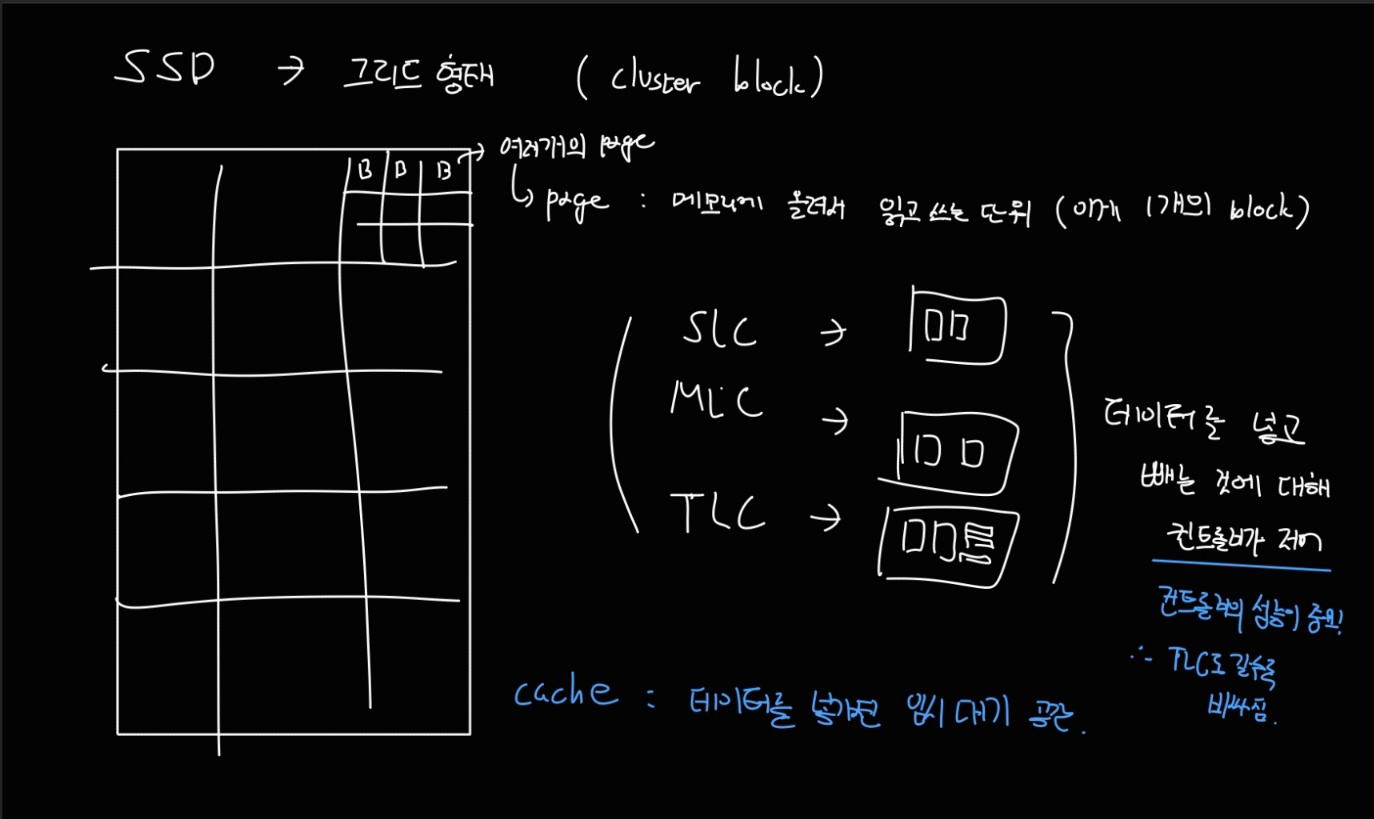 SSD → 그리드 형태 (cluster block)
B B B → 여러개의 page
page : 메모리에 올려서 읽고 쓰는 단위 (이게 1개의 block)
SLC →
MLC →
TLC →
데이터를 넣고
빼는 것에 대해
컨트롤러가 제어
컨트롤러의 성능이 중요!
∴ TLC로 갈수록
비싸짐.
cache : 데이터를 넣기전 임시 대기 공간.